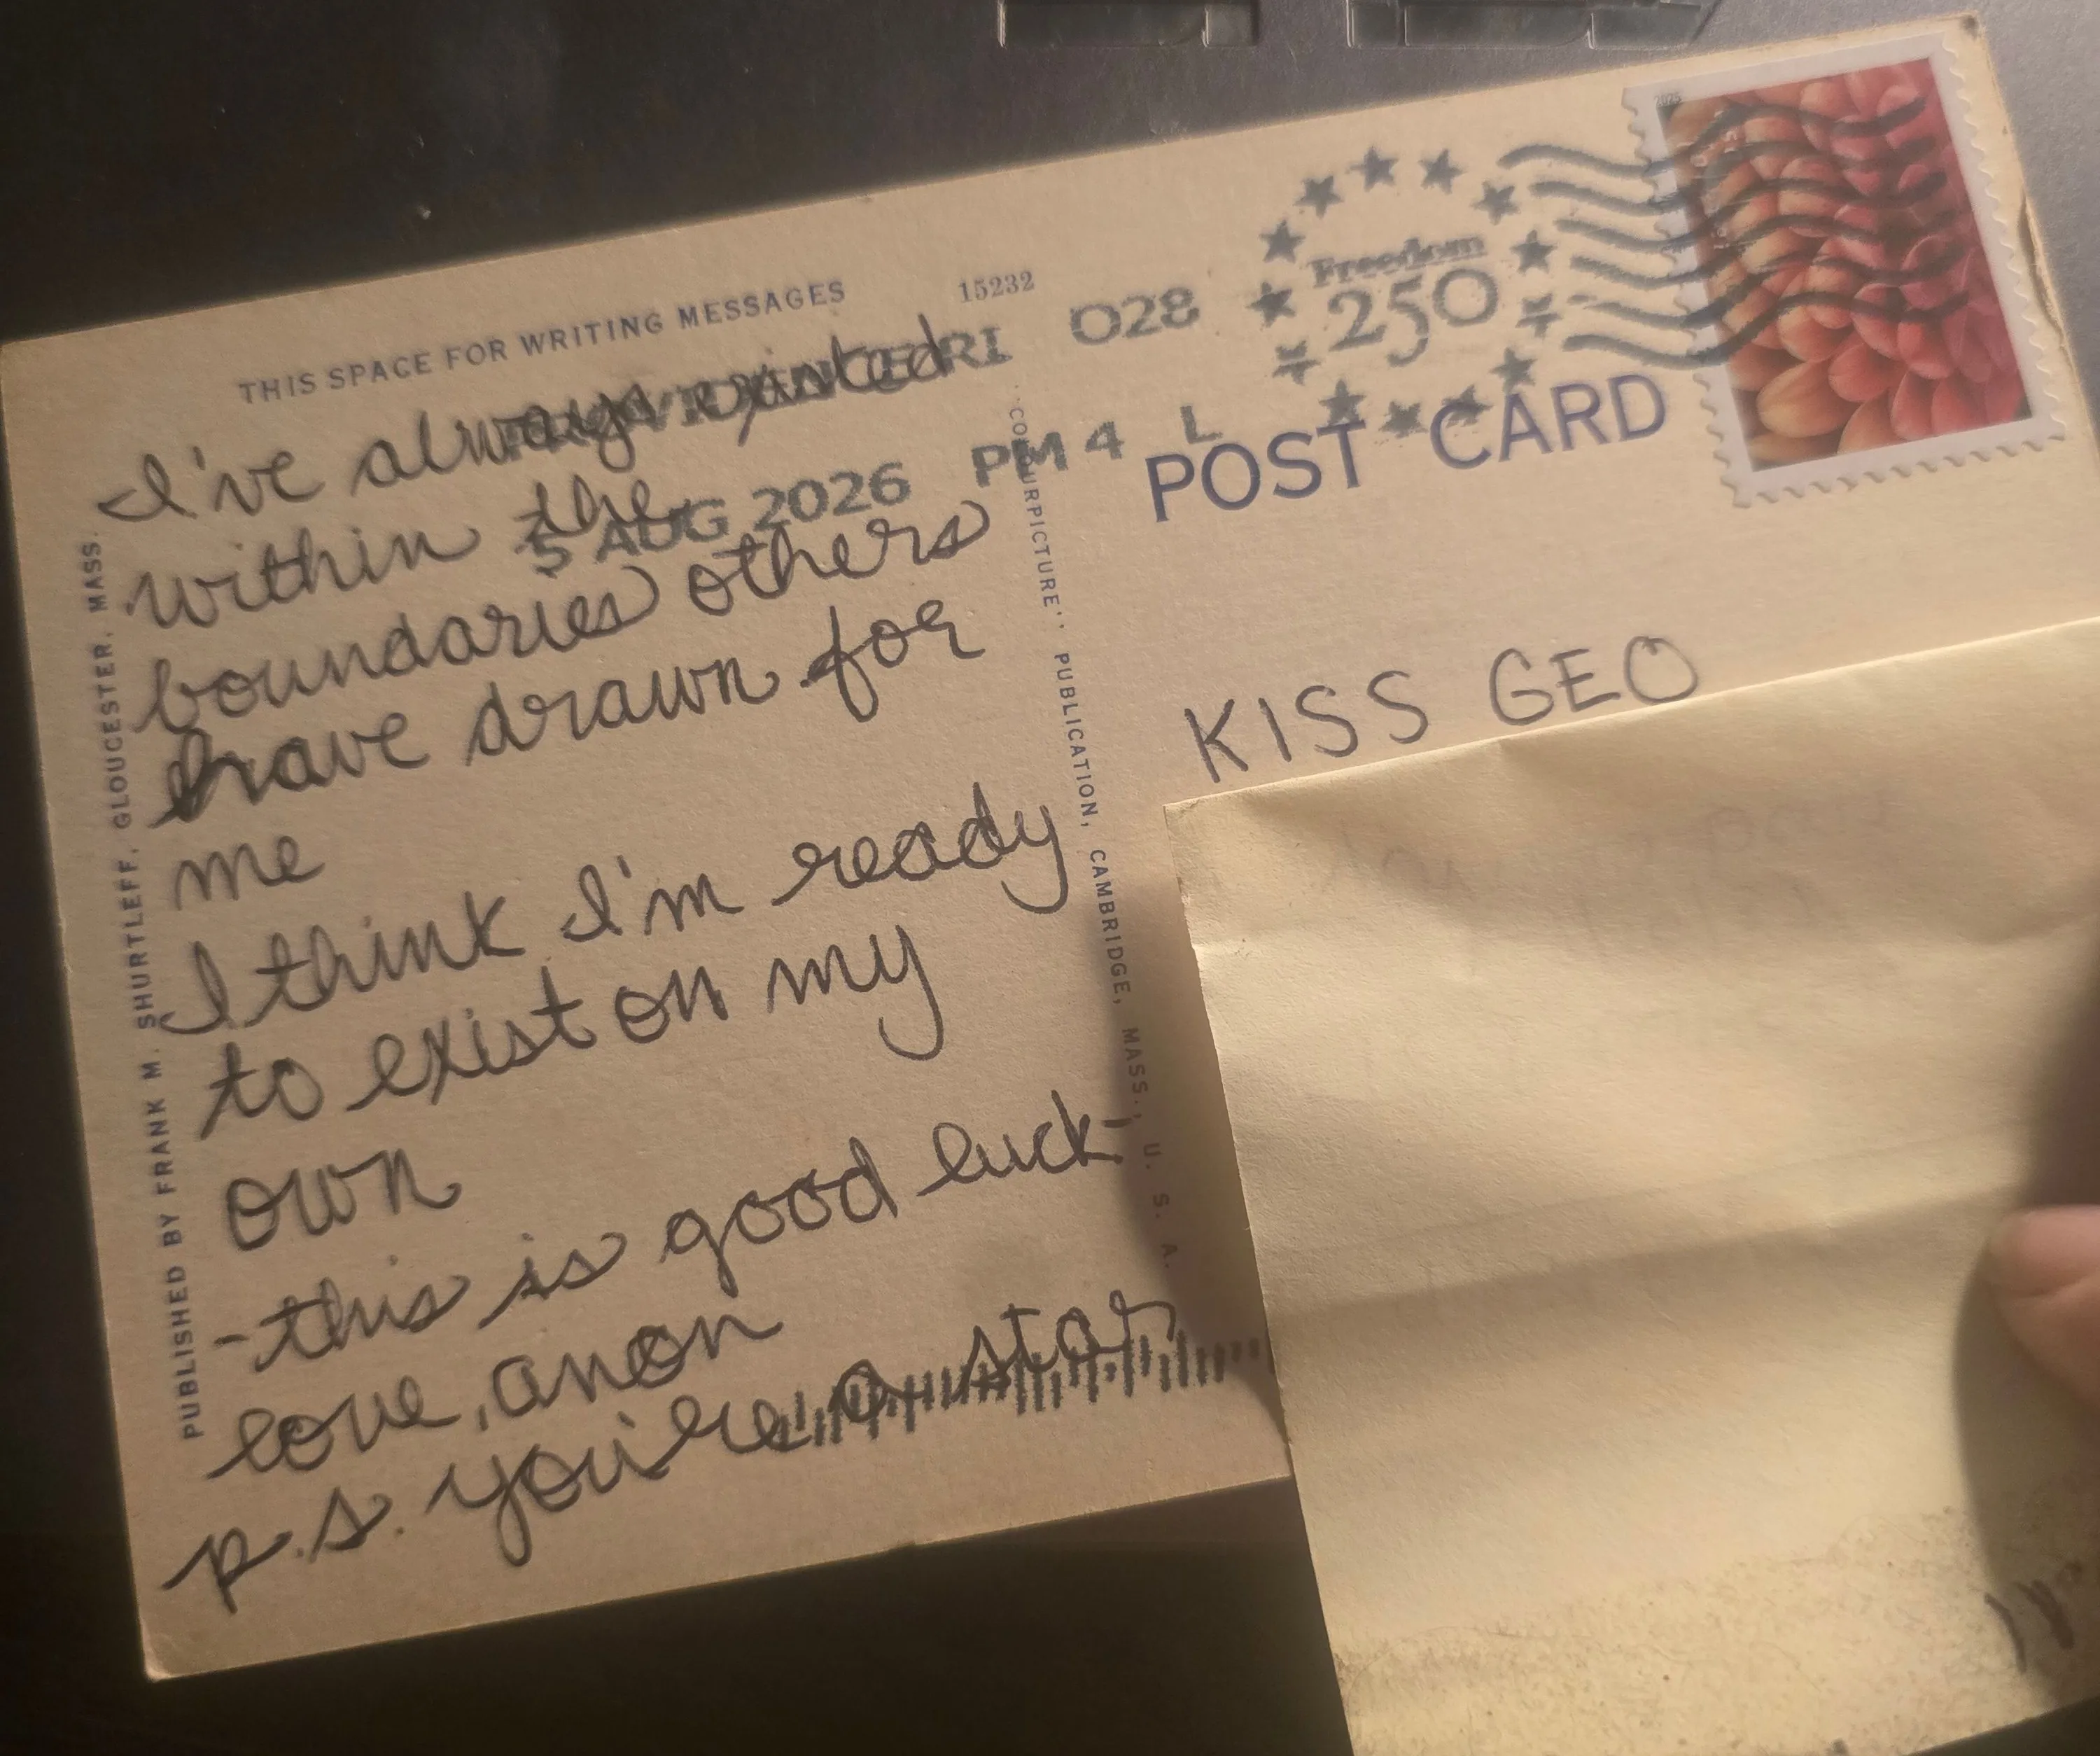 THIS SPACE FOR WRITING MESSAGES
15232
PROVIDENCE RI 028
5 AUG 2026 PM 4 L
Freedom
250
2025
I've always existed
within the
boundaries others
have drawn for
me
I think I'm ready
to exist on my
own
-this is good luck
love, anon
p.s. you're a star
PUBLISHED BY FRANK M. SHURTLEFF, GLOUCESTER, MASS.
"COLOURPICTURE", PUBLICATION, CAMBRIDGE, MASS., U. S. A.
POST CARD
KISS GEO